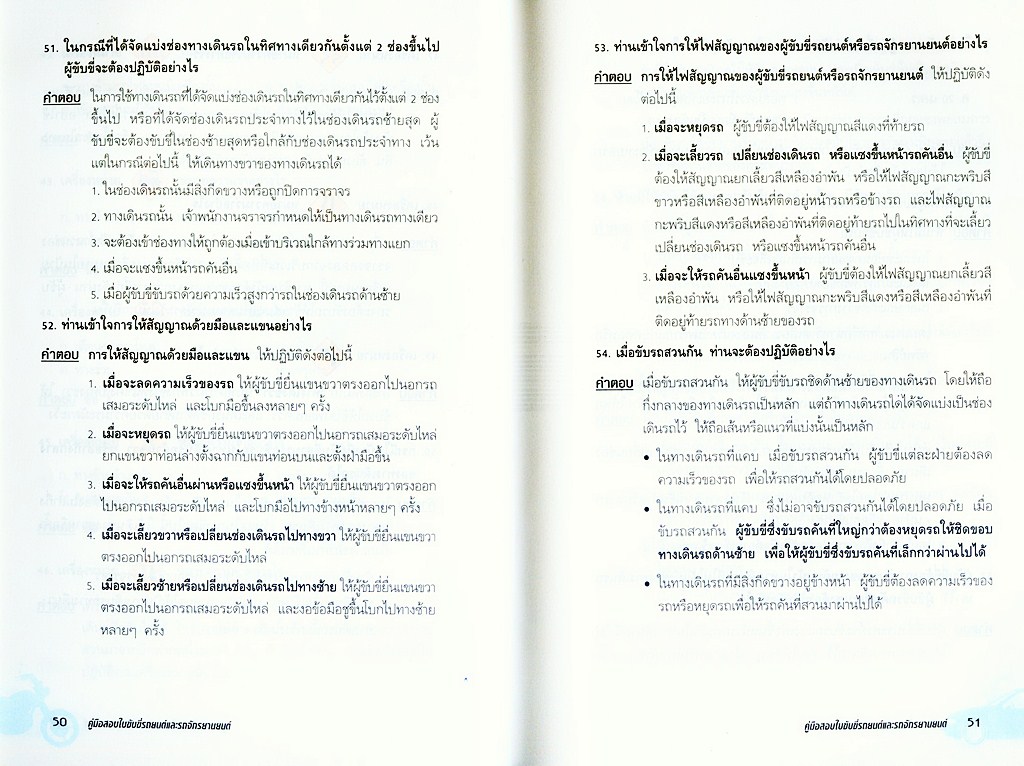 51. ในกรณีที่ได้จัดแบ่งช่องทางเดินรถในทิศทางเดียวกันตั้งแต่ 2 ช่องขึ้นไป
ผู้ขับขี่จะต้องปฏิบัติอย่างไร
คำตอบ ในการใช้ทางเดินรถที่ได้จัดแบ่งช่องเดินรถในทิศทางเดียวกันไว้ตั้งแต่ 2 ช่อง
ขึ้นไป หรือที่ได้จัดช่องเดินรถประจำทางไว้ในช่องเดินรถซ้ายสุด ผู้
ขับขี่จะต้องขับขี่ในช่องซ้ายสุดหรือใกล้กับช่องเดินรถประจำทาง เว้น
แต่ในกรณีต่อไปนี้ ให้เดินทางขวาของทางเดินรถได้
1. ในช่องเดินรถนั้นมีสิ่งกีดขวางหรือถูกปิดการจราจร
2. ทางเดินรถนั้น เจ้าพนักงานจราจรกำหนดให้เป็นทางเดินรถทางเดียว
3. จะต้องเข้าช่องทางให้ถูกต้องเมื่อเข้าบริเวณใกล้ทางร่วมทางแยก
4. เมื่อจะแซงขึ้นหน้ารถคันอื่น
5. เมื่อผู้ขับขี่ขับรถด้วยความเร็วสูงกว่ารถในช่องเดินรถด้านซ้าย
52. ท่านเข้าใจการให้สัญญาณด้วยมือและแขนอย่างไร
คำตอบ การให้สัญญาณด้วยมือและแขน ให้ปฏิบัติดังต่อไปนี้
1. เมื่อจะลดความเร็วของรถ ให้ผู้ขับขี่ยื่นแขนขวาตรงออกไปนอกรถ
เสมอระดับไหล่ และโบกมือขึ้นลงหลายๆ ครั้ง
2. เมื่อจะหยุดรถ ให้ผู้ขับขี่ยื่นแขนขวาตรงออกไปนอกรถเสมอระดับไหล่
ยกแขนขวาท่อนล่างตั้งฉากกับแขนท่อนบนและตั้งฝ่ามือขึ้น
3. เมื่อจะให้รถคันอื่นผ่านหรือแซงขึ้นหน้า ให้ผู้ขับขี่ยื่นแขนขวาตรงออก
ไปนอกรถเสมอระดับไหล่ และโบกมือไปทางข้างหน้าหลายๆ ครั้ง
4. เมื่อจะเลี้ยวขวาหรือเปลี่ยนช่องเดินรถไปทางขวา ให้ผู้ขับขี่ยื่นแขนขวา
ตรงออกไปนอกรถเสมอระดับไหล่
5. เมื่อจะเลี้ยวซ้ายหรือเปลี่ยนช่องเดินรถไปทางซ้าย ให้ผู้ขับขี่ยื่นแขนขวา
ตรงออกไปนอกรถเสมอระดับไหล่ และงอข้อมือชูขึ้นโบกไปทางซ้าย
หลายๆ ครั้ง
50 คู่มือสอบใบขับขี่รถยนต์และรถจักรยานยนต์
53. ท่านเข้าใจการให้ไฟสัญญาณของผู้ขับขี่รถยนต์หรือรถจักรยานยนต์อย่างไร
คำตอบ การให้ไฟสัญญาณของผู้ขับขี่รถยนต์หรือรถจักรยานยนต์ ให้ปฏิบัติดัง
ต่อไปนี้
1. เมื่อจะหยุดรถ ผู้ขับขี่ต้องให้ไฟสัญญาณสีแดงที่ท้ายรถ
2. เมื่อจะเลี้ยวรถ เปลี่ยนช่องเดินรถ หรือแซงขึ้นหน้ารถคันอื่น ผู้ขับขี่
ต้องให้สัญญาณยกเลี้ยวสีเหลืองอำพัน หรือให้ไฟสัญญาณกะพริบสี
ขาวหรือสีเหลืองอำพันที่ติดอยู่หน้ารถหรือข้างรถ และไฟสัญญาณ
กะพริบสีแดงหรือสีเหลืองอำพันที่ติดอยู่ท้ายรถไปในทิศทางที่จะเลี้ยว
เปลี่ยนช่องเดินรถ หรือแซงขึ้นหน้ารถคันอื่น
3. เมื่อจะให้รถคันอื่นแซงขึ้นหน้า ผู้ขับขี่ต้องให้ไฟสัญญาณยกเลี้ยวสี
เหลืองอำพัน หรือให้ไฟสัญญาณกะพริบสีแดงหรือสีเหลืองอำพันที่
ติดอยู่ท้ายรถทางด้านซ้ายของรถ
54. เมื่อขับรถสวนกัน ท่านจะต้องปฏิบัติอย่างไร
คำตอบ เมื่อขับรถสวนกัน ให้ผู้ขับขี่ขับรถชิดด้านซ้ายของทางเดินรถ โดยให้ถือ
กึ่งกลางของทางเดินรถเป็นหลัก แต่ถ้าทางเดินรถใดได้จัดแบ่งเป็นช่อง
เดินรถไว้ ให้ถือเส้นหรือแนวที่แบ่งนั้นเป็นหลัก
• ในทางเดินรถที่แคบ เมื่อขับรถสวนกัน ผู้ขับขี่แต่ละฝ่ายต้องลด
ความเร็วของรถ เพื่อให้รถสวนกันได้โดยปลอดภัย
• ในทางเดินรถที่แคบ ซึ่งไม่อาจขับรถสวนกันได้โดยปลอดภัย เมื่อ
ขับรถสวนกัน ผู้ขับขี่ซึ่งขับรถคันที่ใหญ่กว่าต้องหยุดรถให้ชิดขอบ
ทางเดินรถด้านซ้าย เพื่อให้ผู้ขับขี่ซึ่งขับรถคันที่เล็กกว่าผ่านไปได้
• ในทางเดินรถที่มีสิ่งกีดขวางอยู่ข้างหน้า ผู้ขับขี่ต้องลดความเร็วของ
รถหรือหยุดรถเพื่อให้รถคันที่สวนมาผ่านไปได้
คู่มือสอบใบขับขี่รถยนต์และรถจักรยานยนต์ 51